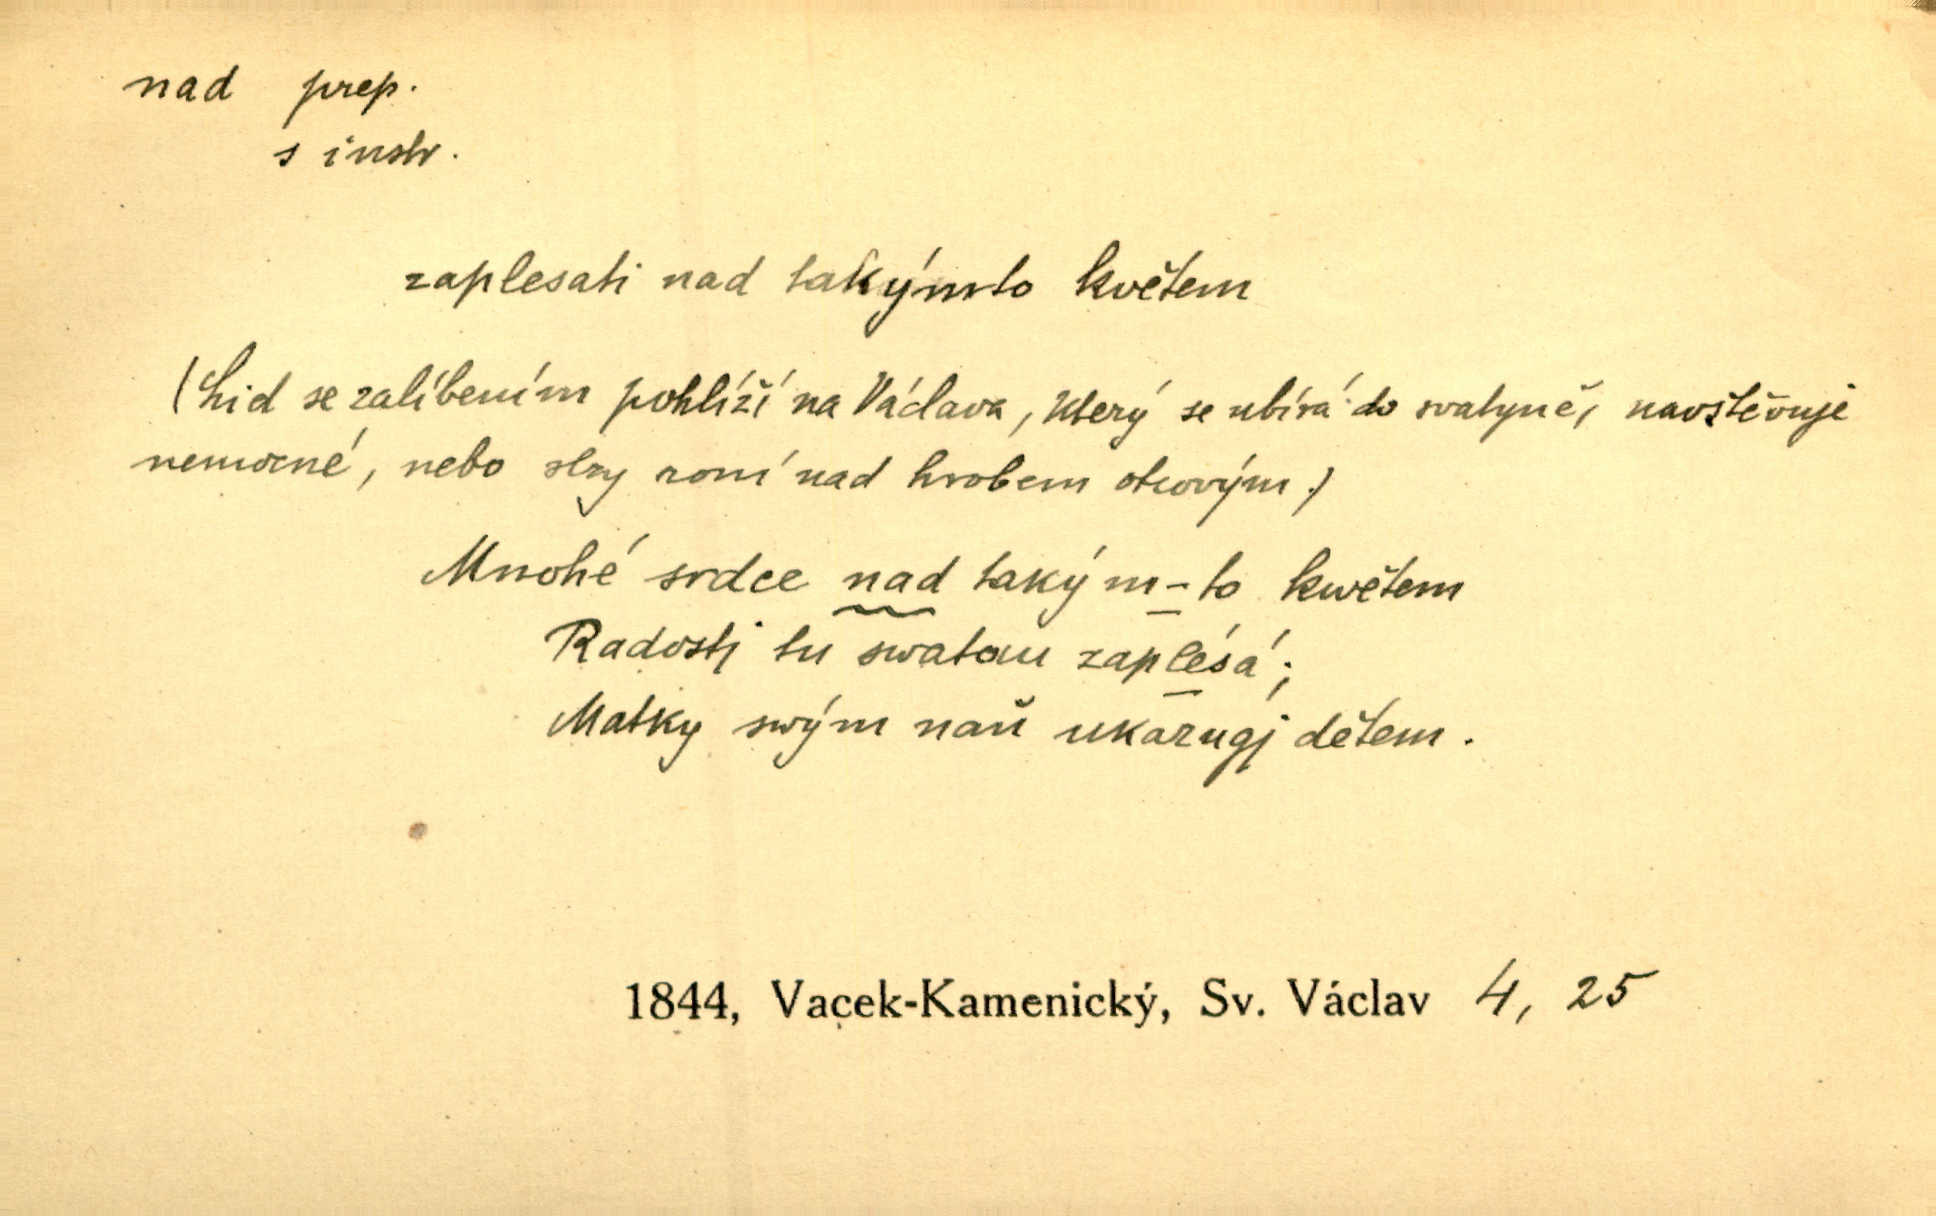 nad prep.
s instr.
zaplesati nad takýmto květem
(Lid se zalíbením pohlíží na Václava, který se ubírá do svatyně, navštěvuje
nemocné, nebo slzy roní nad hrobem otcovým.)
Mnohé srdce nad takým-to kwětem
Radostj tu swatou zaplésá;
Matky swým naň ukazugj dětem.
1844, Vacek-Kamenický, Sv. Václav 4, 25